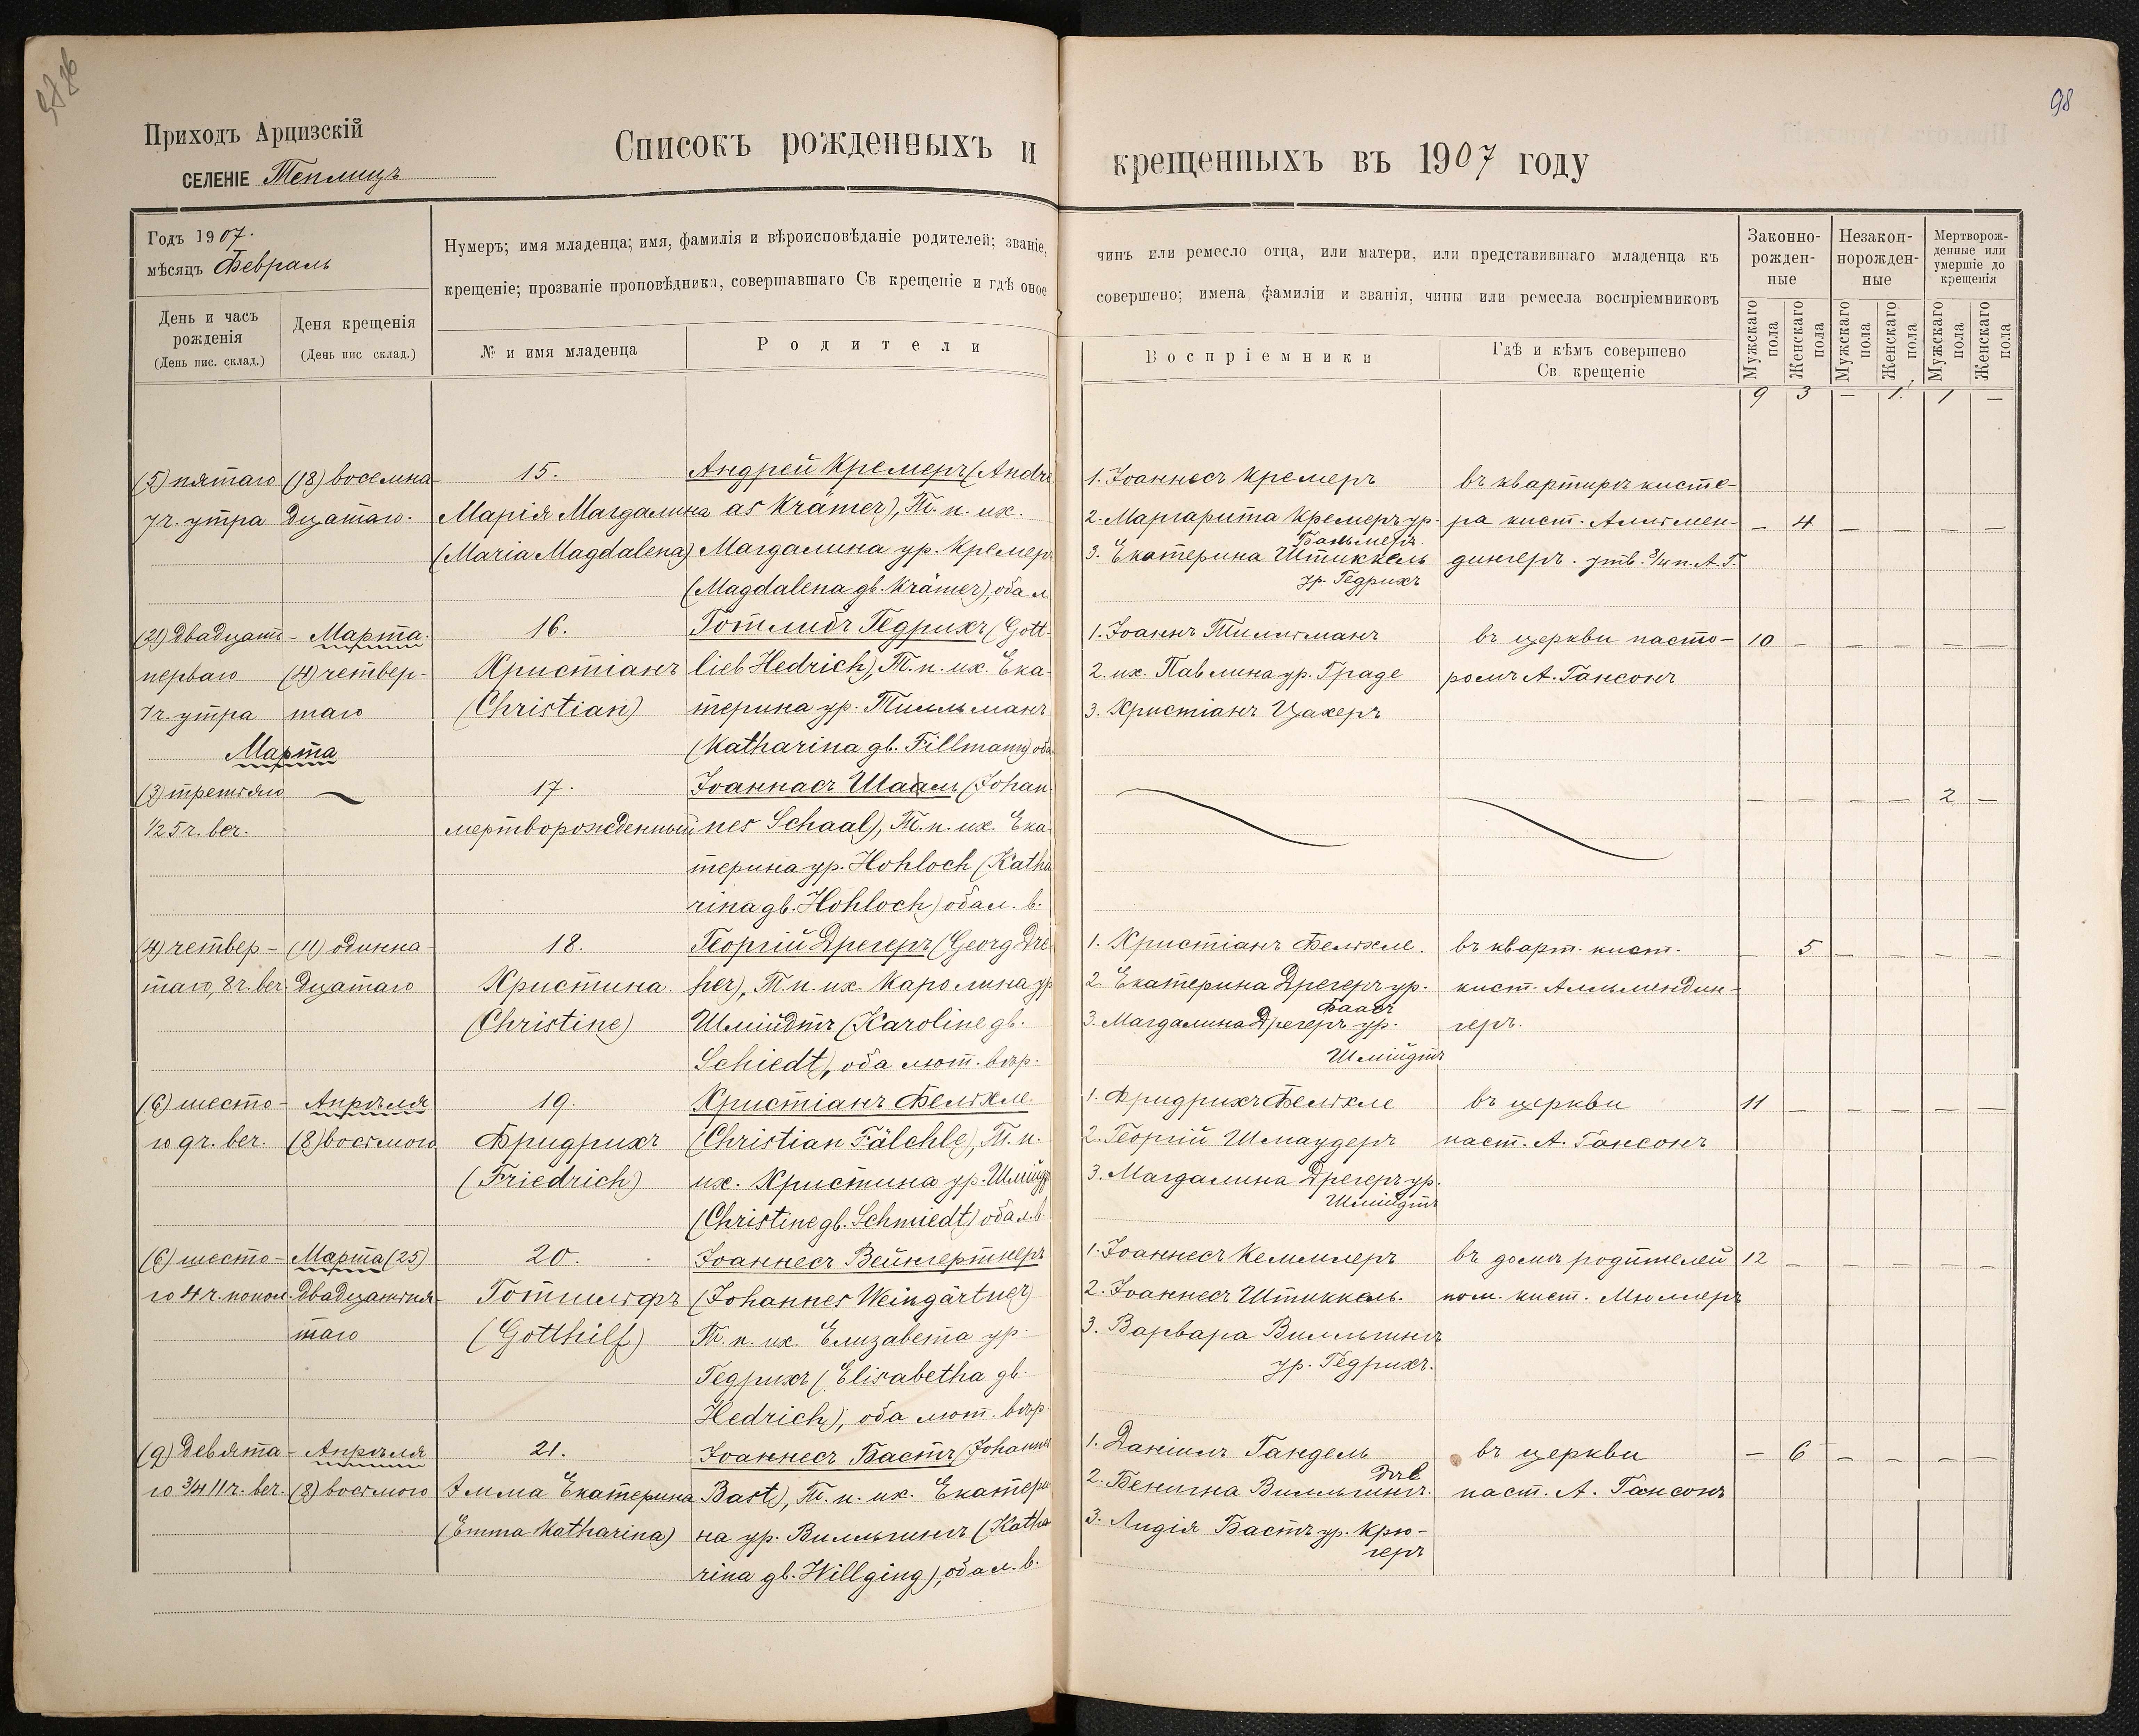 98
Приходъ Арцизскій
СЕЛЕНІЕ Теплицъ
Списокъ рожденныхъ и крещенныхъ въ 1907 году
Годъ 1907.
мѣсяцъ Февраль
Нумеръ; имя младенца; имя, фамилія и вѣроисповѣданіе родителей; званіе, чинъ или ремесло отца, или матери, или представившаго младенца къ
крещеніе; прозваніе проповѣдника, совершавшаго Св крещеніе и гдѣ оное совершено; имена фамиліи и званія, чины или ремесла воспріемниковъ
Законно-
рожден-
ные
Незакон-
норожден-
ные
Мертворож-
денные или
умершіе до
крещенія
День и часъ
рожденія
(День пис. склад.)
Деня крещенія
(День пис склад.)
№ и имя младенца
Родители
Воспріемники
Гдѣ и кѣмъ совершено
Св крещеніе
Мужскаго пола
Женскаго пола
Мужскаго пола
Женскаго пола
Мужскаго пола
Женскаго пола
9 3 — 1. 1 —
(5) пятаго
7 ч. утра
(18) восемна-
дцатаго.
15.
Марія Магдалина
(Maria Magdalena)
Андрей Кремеръ (Andre
as Krämer), Т. п. их.
Магдалина ур. Кремеръ
(Magdalena gb. Krämer), оба л.
1. Іоаннесъ Кремеръ
2. Маргарита Кремеръ ур.
3. Екатерина Штиккель
ур. Гедрихъ
въ квартирѣ кисте-
ра кист. Аллмен-
дингеръ. утв. 3/4 п. А. Г.
— 4 — — — —
(21) двадцать-
перваго
7 ч. утра
Марта.
(4) четвер-
таго
16.
Христіанъ
(Christian)
Готлибъ Гедрихъ (Gott-
lieb Hedrich), Т. п. их. Ека-
терина ур. Тилльманъ
(Katharina gb. Tillmann) оба
1. Іоаннъ Тиллманъ
2. их. Павлина ур. Граде
3. Христіанъ Цахеръ
въ церкви пасто-
ромъ А. Гансонъ
10 — — — — —
Марта
(3) третьяго
1/2 5 ч. веч.
17.
мертворожденный
Іоаннасъ Шаалъ (Johan
nes Schaal), Т. п. их. Ека-
терина ур. Hohloch (Katha
rina gb. Hohloch) оба л. в.
— — — — 2 —
(4) четвер-
таго, 8 ч. веч.
(11) одинна-
дцатаго
18.
Христина
(Christine)
Георгій Дрегеръ (Georg Dre-
her), Т. п. их. Каролина ур
Шмидтъ (Karoline gb.
Schiedt), оба лют. вѣр.
1. Христіанъ Фелхле.
2. Екатерина Дрегеръ ур.
Фаасъ
3. Магдалина Дрегеръ ур.
Шмидтъ
въ кварт. кист.
кист. Алльмендин-
геръ.
— 5 — — — —
(6) шесто-
го 9 ч. веч.
Апрѣля
(8) восьмого
19.
Фридрихъ
(Friedrich)
Христіанъ Фелхле
(Christian Fälchle), Т. п.
их. Христина ур. Шмидт
(Christine gb. Schmiedt) оба л. в
1. Фридрихъ Фелхле
2. Георгій Шмаудеръ
3. Магдалина Дрегеръ ур.
Шмидтъ
въ церкви
паст. А. Гансонъ
11 — — — — —
(6) шесто-
го 4 ч. попол.
Марта (25)
двадцатьпя-
таго
20.
Готтилфъ
(Gotthilf)
Іоаннесъ Вейнгертнеръ
(Johannes Weingärtner)
Т. п. их. Елизавета ур.
Гедрихъ (Elisabetha gb.
Hedrich), оба лют. вѣр.
1. Іоаннесъ Кеммлеръ
2. Іоаннесъ Штиккель.
3. Варвара Вилльгингъ
ур. Гедрихъ.
въ домѣ родителей
пом. кист. Мюллеръ
12 — — — — —
(9) девята-
го 3/4 11 ч. веч.
Апрѣля
(8) восьмого
21.
Эмма Екатерина
(Emma Katharina)
Іоаннесъ Бастъ (Johannes
Bast), Т. п. их. Екатери
на ур. Вилльгингъ (Katha
rina gb. Willging), оба л. в.
1. Даніилъ Гандель
2. Бенигна Вилльгингъ. дѣв.
3. Лидія Бастъ ур. Крю-
геръ
въ церкви
паст. А. Гансонъ
— 6 — — — —